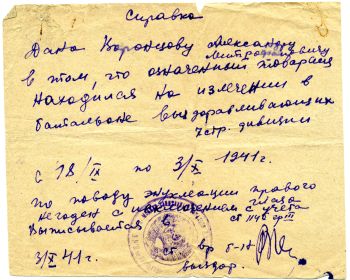 Справка
Дана Воронцову Александру
Митрофановичу
в том, что означенный товарищ
находился на излечении в
батальоне выздоравливающих
7 стр. дивизии
с 18/IX по 3/X 1941 г.
по поводу энуклеации правого
глаза
Негоден с исключением с учета
Выписывается в
3/X 41 г.
вр
выздор.